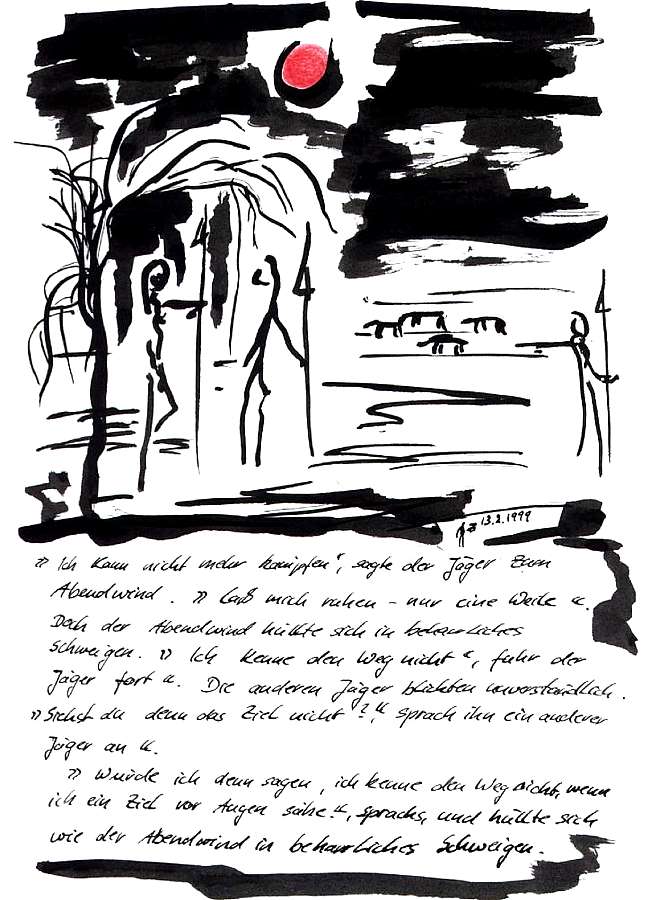 13.2.1999
» Ich kann nicht mehr kämpfen“, sagte der Jäger zum
Abendwind. » Laß mich ruhen – nur eine Weile «.
Doch der Abendwind hüllte sich in beharrliches
Schweigen. » Ich kenne den Weg nicht «, fuhr der
Jäger fort «. Die anderen Jäger blickten unverständlich.
» Siehst du denn das Ziel nicht ? «, sprach ihn ein anderer
Jäger an «.
» Würde ich denn sagen, ich kenne den Weg nicht, wenn
ich ein Ziel vor Augen sähe. «, sprachs, und hüllte sich
wie der Abendwind in beharrliches Schweigen.